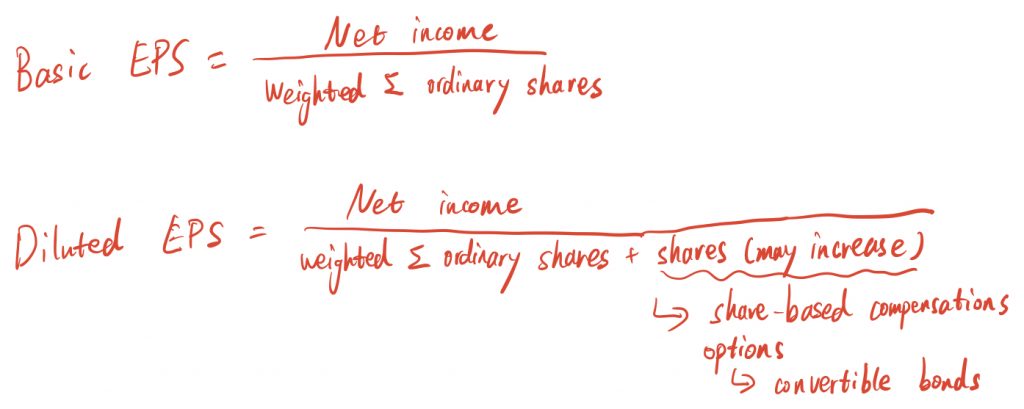 Basic EPS = Net income
Weighted Σ ordinary shares
Diluted EPS = Net income
weighted Σ ordinary shares + shares (may increase)
↳ share-based compensations
options
↳ convertible bonds